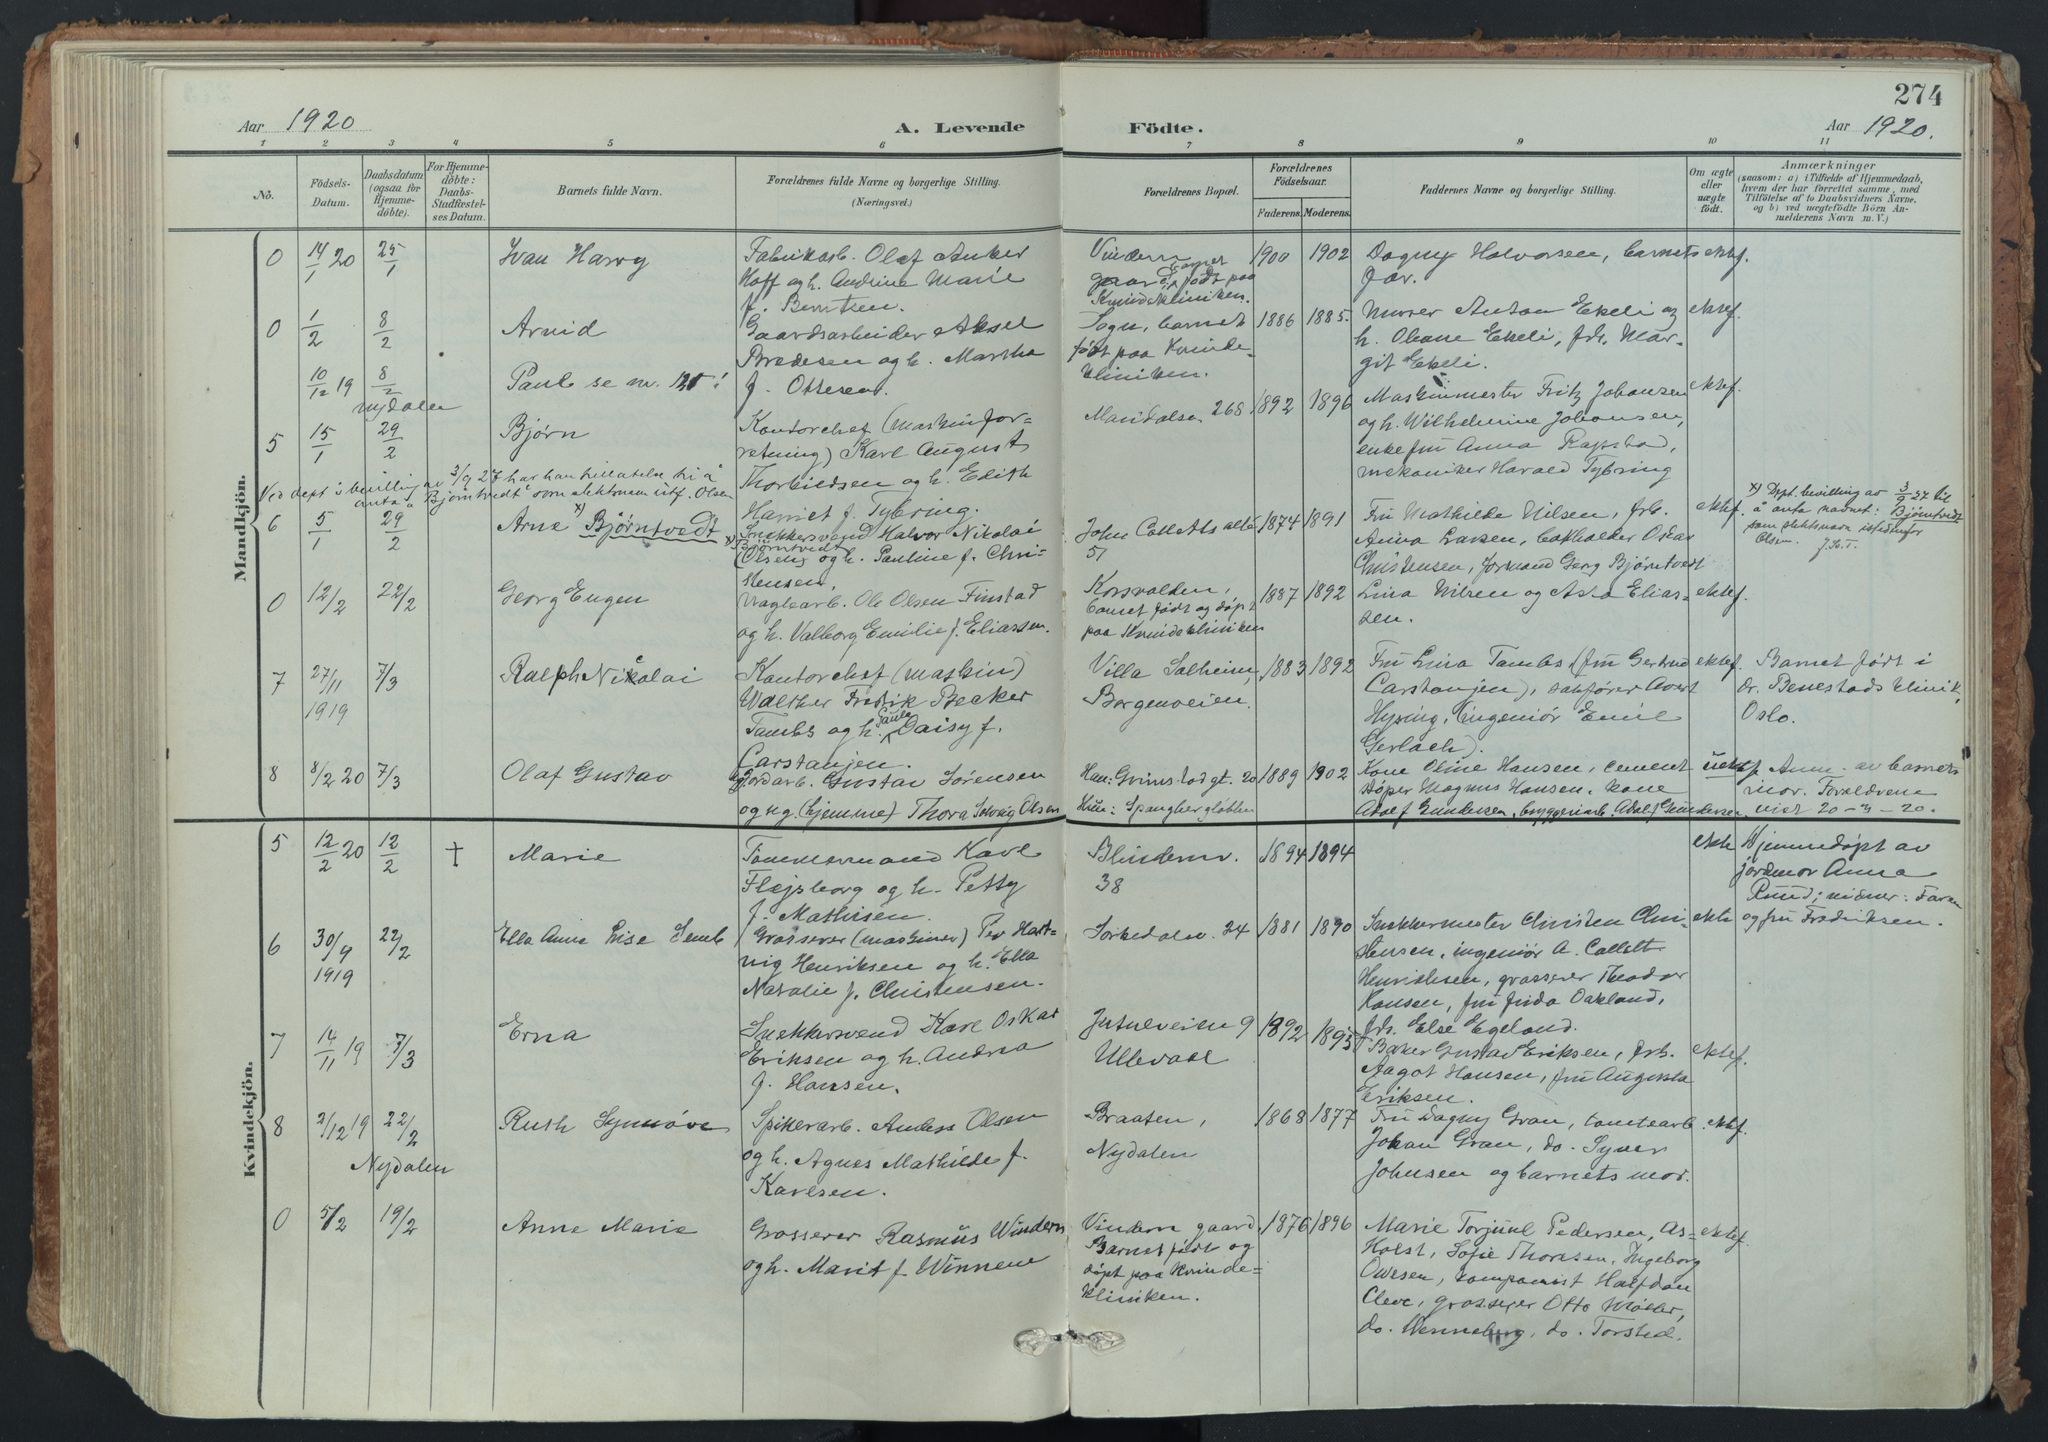 274
Aar 1920
A. Levende Födte.
Aar 1920.
1 2 3 4 5 6 7 8 9 10 11
No.
Födsels-
Datum.
Daabsdatum
(ogsaa for
Hjemme-
döbte).
For Hjemme-
döbte:
Daabs-
Stadfæstel-
ses Datum.
Barnets fulde Navn.
Forældrenes fulde Navne og borgerlige Stilling.
(Næringsvei.)
Forældrenes Bopæl.
Forældrenes
Födselsaar.
Faderens. Moderens.
Faddernes Navne og borgerlige Stilling.
Om ægte
eller
uægte
födt.
Anmærkninger
(saasom: a) i Tilfælde af Hjemmedaab,
hvem der har forrettet samme, med
Tilföielse af to Daabsvidners Navne,
og b) ved uægtefödte Börn An-
melderens Navn m. V.)
Mandkjön.
0 14/1 20 25/1
Ivan Harry
Fabrikarb. Olaf Anker
Hoff og h. Andrine Marie
f. Berntsen.
Vindern
gaard, Barnet
født paa
Kvindekliniken.
1900 1902
Dagny Halvorsen, barnets
far.
ektef.
0 1/2 8/2
Arvid
Gaardsarbeider Aksel
Bredesen og h. Martha
f. Ottesen.
Sogn, barnet
født paa Kvinde-
kliniken.
1886 1885.
Murer Anton Ekeli og
h. Oleane Ekeli, frk. Mar-
git Ekeli.
ektef.
10/12 19 8/2
Nydalen
Paul se nr. 125!
5 15/1 29/2
Bjørn
Kontorchef (maskinfor-
retning) Karl August
Thorkildsen og h. Edith
Harriet f. Tybring.
Maridalsv. 268
1892 1896
Maskinmester Fritz Johansen
og h. Wilhelmine Johansen,
enkefru Anna Rappstad,
mekaniker Harald Tybring
ektef.
Ved dept's bevilling av 3/9 27 har han tillatelse til å
anta "Bjørntvedt" som slektsnavn istf. Olsen
6 5/1 29/2
Arne x) Bjørntvedt
Snekkersvend Halvor Nikolai
x) Bjørntvedt
(Olsen) og h. Pauline f. Chri-
stensen.
John Colletts allé
51
1874 1891
Fru Mathilde Nilsen, frk.
Anna Larsen, bokholder Oskar
Christensen, formand Georg Bjørntvedt
ektef.
x) Dept. bevilling av 3/9 27 til
å anta navnet: Bjørntvedt
som slektsnavn istedenfor
Olsen.
0 12/2 22/2
Georg Eugen
Naglearb. Ole Olsen Finstad
og h. Valborg Emilie f. Eliassen.
Korsvolden,
barnet født og døpt
paa Kvindekliniken
1887 1892
Lina Nilsen og Asta Elias-
sen.
ektef.
7 27/11 1919 7/3
Ralph Nicolai
Kontorchef (maskin)
Walther Fredrik Becker
Tambs og h. Paula Daisy f.
Carstanjen.
Villa Solheim,
Borgenveien.
1883 1892
Fru Lina Tambs (fru Gertrud
Carstanjen), sakfører Avert
Hysing, (ingeniør Emil
Gerlach).
ektef.
Barnet født i
dr. Benestads klinik,
Oslo.
8 8/2 20 7/3
Olaf Gustav
Jordarb. Gustav Sørensen
og ug. (hjemme) Thora Solveig Olsen
Han: Grimstadgt. 20
Hun: Spangbergløkken
1889 1902
Kone Oline Hansen, cement
støper Magnus Hansen, kone
Adolf Gundersen, bryggeriarb. Adolf Gundersen
uektef.
Anm. av barnets
mor. Forældrene
viet 20-3-20.
Kvindekjön.
5 12/2 20 12/2 †
Marie
Tømmermand Karl
Flejsborg og h. Petty
f. Mathisen.
Blindernv.
38
1894 1894
ekte
Hjemmedøpt av
jordmor Anna
Ruud; vidner: Faren
og fru Fredriksen.
6 30/9 1919 22/2
Ella Anne Lise Semb
Grosserer (maskiner) Per Hart-
vig Henriksen og h. Ella
Natalie f. Christensen.
Sørkedalsv. 24
1881 1890
Snekkermester Christen Chri-
stensen, ingeniør A. Collett
Henriksen, grosserer Theodor
Hansen, fru Frida Oakland,
frk. Else Egeland.
ekte
7 14/11 19 7/3
Erna
Snekkersvend Karl Oskar
Eriksen og h. Andrea
f. Hansen.
Jutulveien 9
Ullevaal
1892 1895
Baker Gustav Eriksen, frk.
Aagot Hansen, fru Augusta
Eriksen.
ektef.
8 2/12 19 22/2
Nydalen
Ruth Synnøve
Spikerarb. Anders Olsen
og h. Agnes Mathilde f.
Karlsen.
Braaten,
Nydalen
1868 1877
Fru Dagny Gran, tomtearb.
Johan Gran, do. Syver
Johnsen og barnets mor.
ektef.
0 5/2 19/2
Anne Marie
Grosserer Rasmus Windern
og h. Marit f. Winnem
Vindern gaard
Barnet født og
døpt paa Kvinde-
kliniken.
1876 1896
Marie Torjuul Pedersen, As-
Holst, Sofie Thoresen, Ingeborg
Owesen, komponist Halfdan
Cleve, grosserer Otto Møller,
do. Wenneberg, do. Torsted.
ektef.